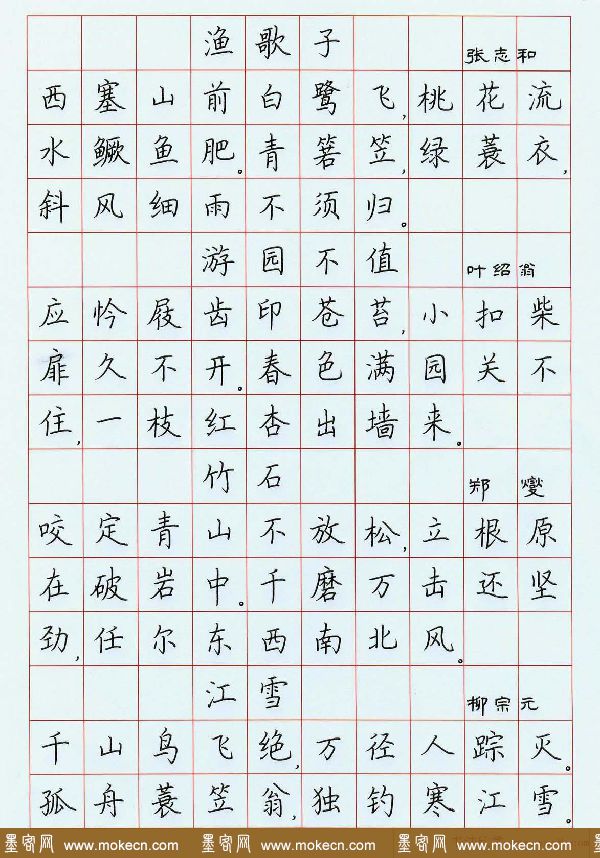 渔歌子 张志和
西塞山前白鹭飞,桃花流
水鳜鱼肥。青箬笠,绿蓑衣,
斜风细雨不须归。
游园不值 叶绍翁
应怜屐齿印苍苔,小扣柴
扉久不开。春色满园关不
住,一枝红杏出墙来。
竹石 郑燮
咬定青山不放松,立根原
在破岩中。千磨万击还坚
劲,任尔东西南北风。
江雪 柳宗元
千山鸟飞绝,万径人踪灭。
孤舟蓑笠翁,独钓寒江雪。
墨客网 www.mokecn.com 墨客网 www.mokecn.com 墨客网 www.mokecn.com